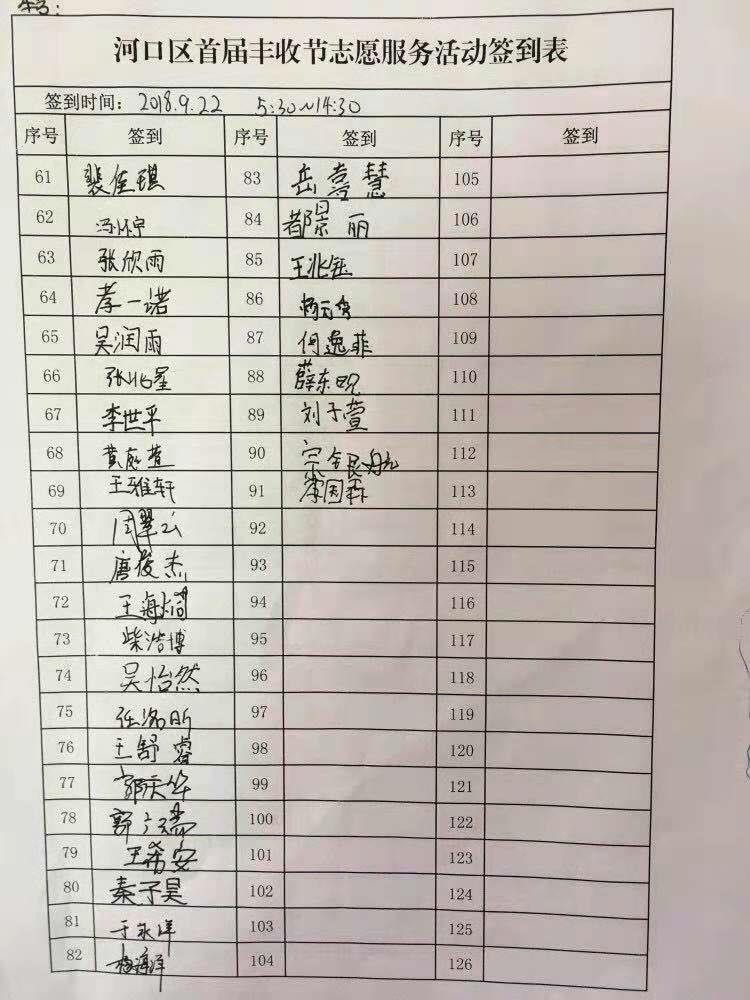 河口区首届丰收节志愿服务活动签到表
签到时间: 2018.9.22 5:30~14:30
序号 签到 序号 签到 序号 签到
61 裴佳琪 83 岳喜慧 105
62 冯怀宁 84 都景丽 106
63 张欣雨 85 王兆钰 107
64 李一诺 86 108
65 吴润雨 87 何逸菲 109
66 张化星 88 薛东昆 110
67 李世平 89 刘子萱 111
68 黄 90 宗银航 112
69 王雅轩 91 113
70 周翠云 92 114
71 唐俊杰 93 115
72 王海 94 116
73 柴浩博 95 117
74 吴怡然 96 118
75 张洺昕 97 119
76 王舒睿 98 120
77 郭天华 99 121
78 郭 100 122
79 王希安 101 123
80 秦子昊 102 124
81 于永洋 103 125
82 杨海洋 104 126